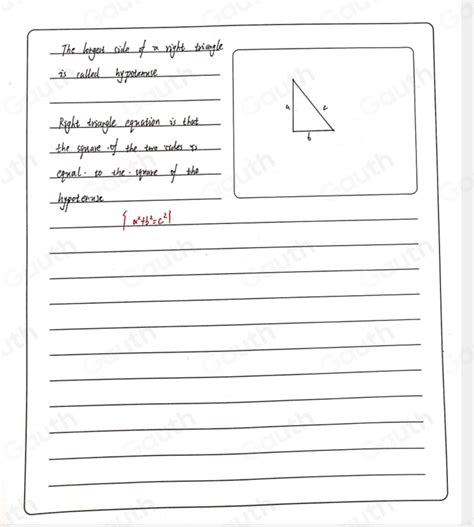 The longest side of a right triangle
is called hypotenuse
Right triangle equation is that
the square of the two sides is
equal to the square of the
hypotenuse
{ a²+b²=c² }
a
c
b
Gauth